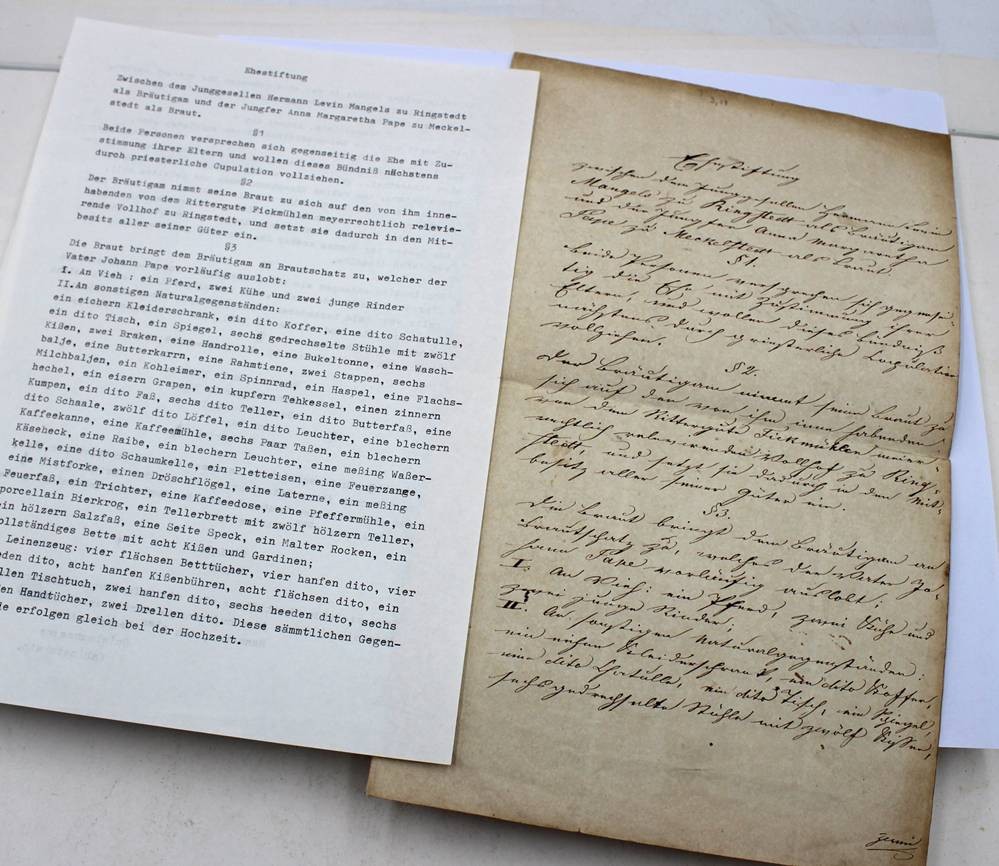 Ehestiftung
Zwischen dem Junggesellen Hermann Levin Mangels zu Ringstedt
als Bräutigam und der Jungfer Anna Margaretha Pape zu Meckel-
stedt als Braut.
§1
Beide Personen versprechen sich gegenseitig die Ehe mit Zu-
stimmung ihrer Eltern und wollen dieses Bündniß nächstens
durch priesterliche Cupulation vollziehen.
§2
Der Bräutigam nimmt seine Braut zu sich auf den von ihm inne-
habenden von dem Rittergute Fickmühlen meyerrechtlich relevie-
rende Vollhof zu Ringstedt, und setzt sie dadurch in den Mit-
besitz aller seiner Güter ein.
§3
Die Braut bringt dem Bräutigam an Brautschatz zu, welcher der
Vater Johann Pape vorläufig auslobt:
I. An Vieh : ein Pferd, zwei Kühe und zwei junge Rinder
II.An sonstigen Naturalgegenständen:
ein eichern Kleiderschrank, ein dito Koffer, eine dito Schatulle,
ein dito Tisch, ein Spiegel, sechs gedrechselte Stühle mit zwölf
Kißen, zwei Braken, eine Handrolle, eine Bukeltonne, eine Wasch-
balje, eine Butterkarrn, eine Rahmtiene, zwei Stappen, sechs
Milchbaljen, ein Kohleimer, ein Spinnrad, ein Haspel, eine Flachs-
hechel, ein eisern Grapen, ein kupfern Tehkessel, einen zinnern
Kumpen, ein dito Faß, sechs dito Teller, ein dito Butterfaß, eine
dito Schaale, zwölf dito Löffel, ein dito Leuchter, eine blechern
Kaffeekanne, eine Kaffeemühle, sechs Paar Taßen, ein blechern
Käseheck, eine Raibe, ein blechern Leuchter, eine meßing Waßer-
kelle, eine dito Schaumkelle, ein Pletteisen, eine Feuerzange,
eine Mistforke, einen Dröschflögel, eine Laterne, ein meßing
Feuerfaß, ein Trichter, eine Kaffeedose, eine Pfeffermühle, ein
porcellain Bierkrog, ein Tellerbrett mit zwölf hölzern Teller,
ein hölzern Salzfaß, eine Seite Speck, ein Malter Rocken, ein
ollständiges Bette mit acht Kißen und Gardinen;
Leinenzeug: vier flächsen Betttücher, vier hanfen dito, vier
eden dito, acht hanfen Kißenbühren, acht flächsen dito, ein
llen Tischtuch, zwei hanfen dito, sechs heeden dito, sechs
en Handtücher, zwei Drellen dito. Diese sämmtlichen Gegen-
e erfolgen gleich bei der Hochzeit.
Ehestiftung
zwischen dem Junggesellen Hermann Levin
Mangels zu Ringstedt als Bräutigam
und der Jungfer Anna Margaretha
Pape zu Meckelstedt als Braut
§ 1.
Beide Personen versprechen sich gegensei-
tig die Ehe mit Zustimmung ihrer
Eltern, und wollen dieses Bündniß
nächstens durch priesterliche Cupulation
vollziehen.
§ 2.
Der Bräutigam nimmt seine Braut zu
sich auf den von ihm inne habenden
von dem Rittergute Fickmühlen meier-
rechtlich relevirenden Vollhof zu Ring-
stedt, und setzt sie dadurch in den Mit-
besitz aller seiner Güter ein.
§ 3.
Die Braut bringt dem Bräutigam an
Brautschatz zu, welches der Vater Jo-
hann Pape vorläufig auslobt:
I. An Vieh: ein Pferd, zwei Kühe und
zwei junge Rinder.
II. An sonstigen Naturalgegenständen:
ein eichen Kleiderschrank, ein dito Koffer,
eine dito Schatulle, ein dito Tisch, ein Spiegel,
sechs gedrechselte Stühle mit zwölf Kißen,
zwei